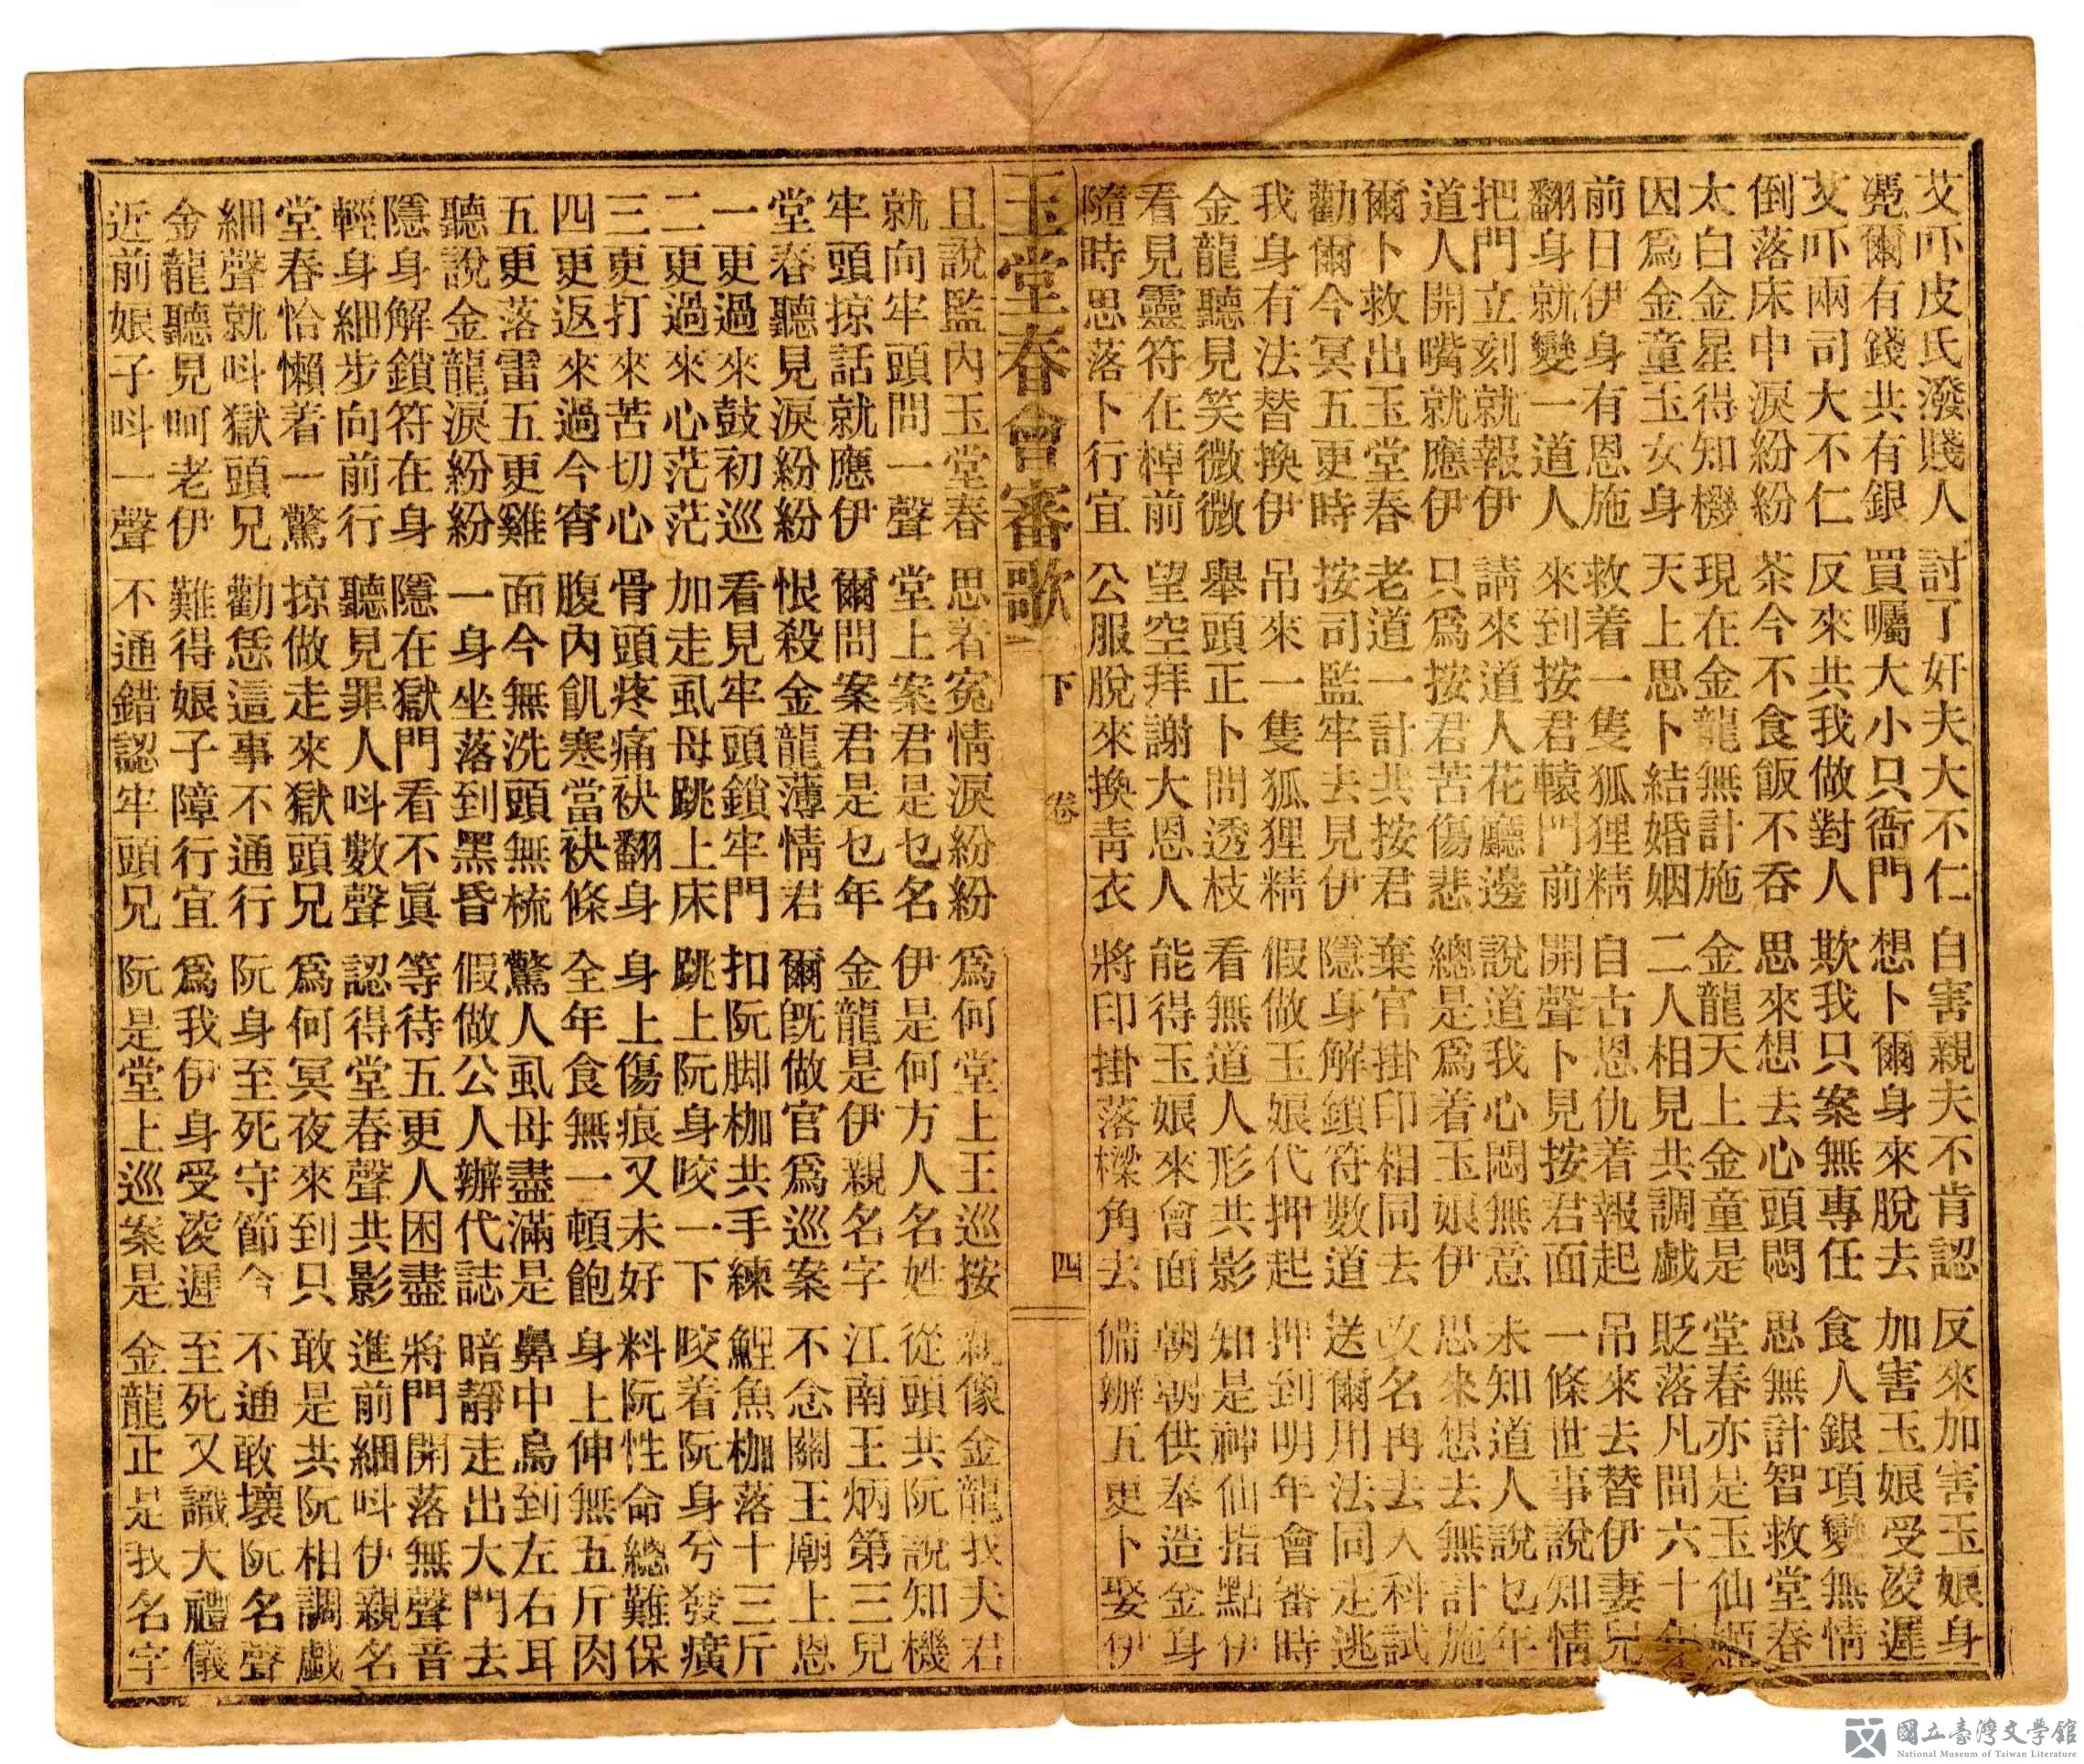 艾吓皮氏潑賤人　討了奸夫大不仁　自害親夫不肯認　反來加害玉娘身
凴爾有錢共有銀　買囑大小只衙門　想卜爾身來脫去　加害玉娘受凌遲
艾吓兩司大不仁　反來共我做對人　欺我只案無專任　食人銀項變無情
倒落床中淚紛紛　茶今不食飯不吞　思來想去心頭悶　思無計智救堂春
太白金星得知機　現在金龍無計施　金龍天上金童是　堂春亦是玉仙姬
因爲金童玉女身　天上思卜結婚姻　二人相見共調戲　貶落凡間六十
前日伊身有恩施　救着一隻狐狸精　自古恩仇着報起　吊來去替伊妻兒
翻身就變一道人　來到按君轅門前　開聲卜見按君面　一條世事說知情
把門立刻就報伊　請來道人花廳邊　說道我心悶無意　未知道人說乜年
道人開嘴就應伊　只爲按君苦傷悲　總是爲着玉娘伊　思來想去無計施
爾卜救出玉堂春　老道一計共按君　棄官掛印相同去　改名再去入科試
勸爾今冥五更時　按司監牢去見伊　隱身解鎖符數道　送爾用法同走逃
我身有法替換伊　吊來一隻狐狸精　假做玉娘代押起　押到明年會審時
金龍聽見笑微微　舉頭正卜問透枝　看無道人形共影　知是神仙指點伊
看見靈符在棹前　望空拜謝大恩人　能得玉娘來會面　朝朝供奉造金身
隨時思落卜行宜　公服脫來換靑衣　將印掛落樑角去　備辦五更卜娶伊
玉堂春會審歌　下　卷　四
且說監內玉堂春　思着寃情淚紛紛　爲何堂上王巡按　親像金龍我夫君
就向牢頭問一聲　堂上案君是乜名　伊是何方人名姓　從頭共阮說知機
牢頭掠話就應伊　爾問案君是乜年　金龍是伊親名字　江南王炳第三兒
堂春聽見淚紛紛　恨殺金龍薄情君　爾旣做官爲巡案　不念關王廟上恩
一更過來鼓初巡　看見牢頭鎖牢門　扣阮脚枷共手練　鯉魚枷落十三斤
二更過來心茫茫　加走虱母跳上床　跳上阮身咬一下　咬着阮身兮發癀
三更打來苦切心　骨頭疼痛袂翻身　身上傷痕又未好　料阮性命總難保
四更返來過今宵　腹內飢寒當袂條　全年食無一頓飽　身上伸無五斤肉
五更落雷五更雞　面今無洗頭無梳　驚人虱母盡滿是　鼻中烏到左右耳
聽說金龍淚紛紛　一身坐落到黑昏　假做公人辦代誌　暗靜走出大門去
隱身解鎖符在身　隱在獄門看不眞　等待五更人困盡　將門開落無聲音
輕身細步向前行　聽見罪人呌數聲　認得堂春聲共影　進前細呌伊親名
堂春恰懶着一驚　掠做走來獄頭兄　爲何冥夜來到只　敢是共阮相調戲
細聲就呌獄頭兄　勸恁這事不通行　阮身至死守節今　不通敢壞阮名聲
金龍聽見呵老伊　難得娘子障行宜　爲我伊身受凌遲　至死又識大禮儀
近前娘子呌一聲　不通錯認牢頭兄　阮是堂上巡案是　金龍正是我名字
國立臺灣文學館
National Museum of Taiwan Literature